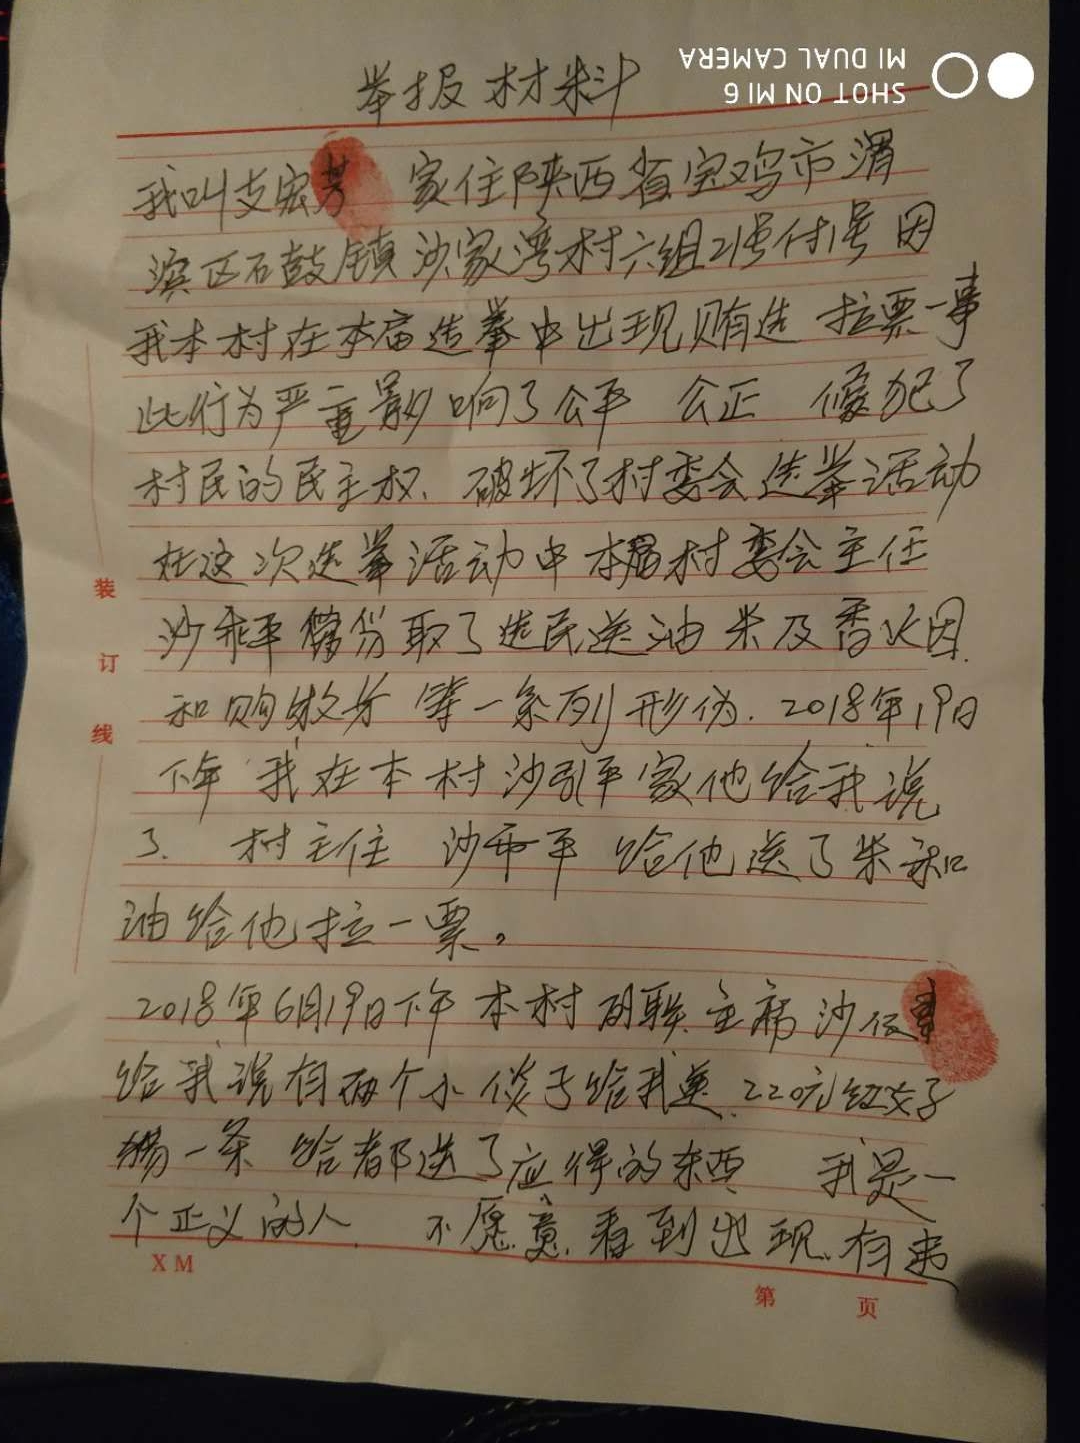 举报材料
我叫支宏芳 家住陕西省宝鸡市渭
滨区石鼓镇沙家湾村六组21号付1号因
我本村在本届选举中出现贿选 拉票一事
此行为严重影响了公平 公正 侵犯了
村民的民主权、破坏了村委会选举活动
在这次选举活动中本届村委会主任
沙乖平 取了选民送油米及香火因
和购 等一条列形伪.2018年19日
下午 我在本村沙引平家他给我说
了. 村主任 沙 平 给他送了米和
油给他拉一票。
2018年6月19日下午 本村 联主席 沙
给我说有两个小伙子给我送220元红 子
一条 给都送了应得的东西 我是一
个正义的人 不愿意看到出现有
装
订
线
XM
第 页
SHOT ON MI 6
MI DUAL CAMERA